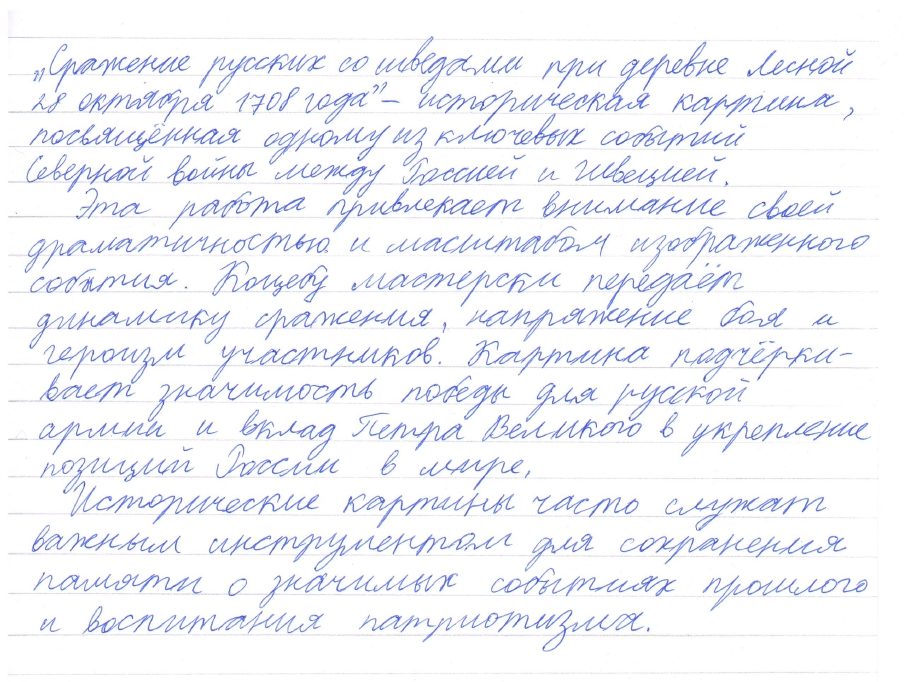 „Сражение русских со шведами при деревне Лесной
28 октября 1708 года" – историческая картина,
посвящённая одному из ключевых событий
Северной войны между Россией и Швецией.
Эта работа привлекает внимание своей
драматичностью и масштабом изображенного
события. Коцебу мастерски передаёт
динамику сражения, напряжение боя и
героизм участников. Картина подчёрки-
вает значимость победы для русской
армии и вклад Петра Великого в укрепление
позиций России в мире.
Исторические картины часто служат
важным инструментом для сохранения
памяти о значимых событиях прошлого
и воспитания патриотизма.